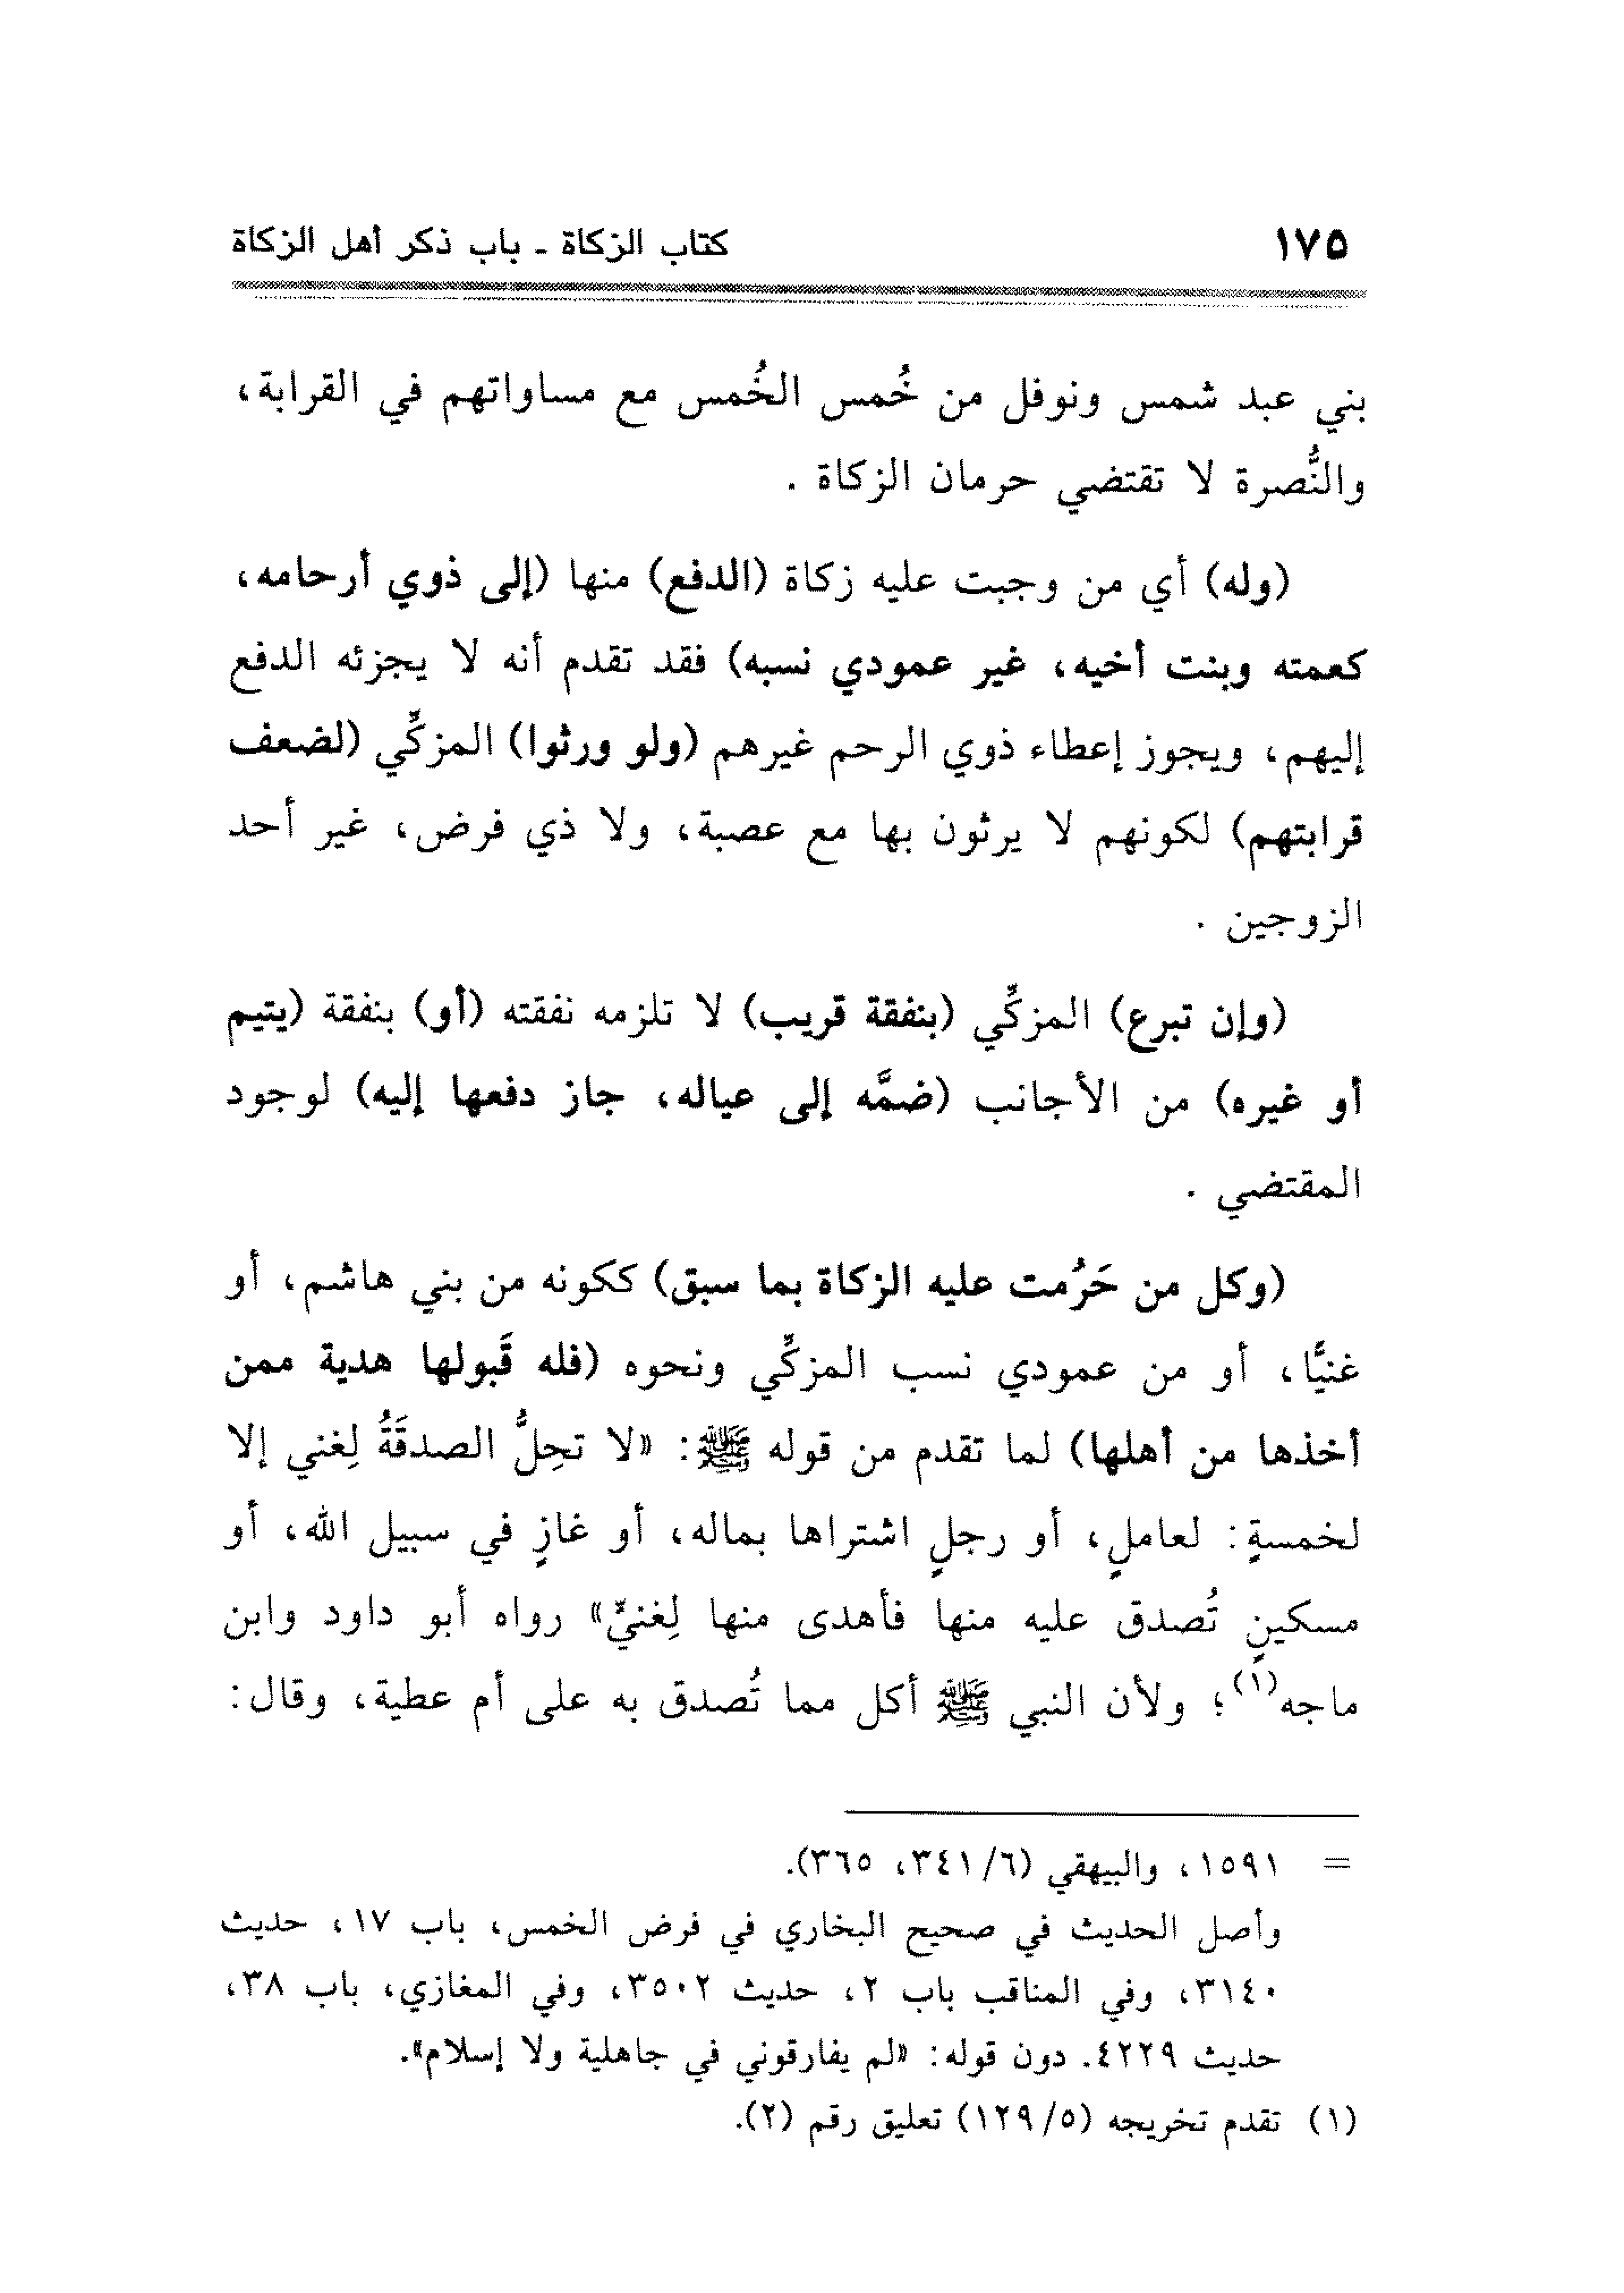 ١٧٥ كتاب الزكاة ـ باب ذكر أهل الزكاة
بني عبد شمس ونوفل من خُمس الخُمس مع مساواتهم في القرابة،
والنُّصرة لا تقتضي حرمان الزكاة .
(وله) أي من وجبت عليه زكاة (الدفع) منها (إلى ذوي أرحامه،
كعمته وبنت أخيه، غير عمودي نسبه) فقد تقدم أنه لا يجزئه الدفع
إليهم، ويجوز إعطاء ذوي الرحم غيرهم (ولو ورثوا) المزكِّي (لضعف
قرابتهم) لكونهم لا يرثون بها مع عصبة، ولا ذي فرض، غير أحد
الزوجين .
(وإن تبرع) المزكِّي (بنفقة قريب) لا تلزمه نفقته (أو) بنفقة (يتيم
أو غيره) من الأجانب (ضمَّه إلى عياله، جاز دفعها إليه) لوجود
المقتضي .
(وكل من حَرُمت عليه الزكاة بما سبق) ككونه من بني هاشم، أو
غنيًّا، أو من عمودي نسب المزكِّي ونحوه (فله قَبولها هدية ممن
أخذها من أهلها) لما تقدم من قوله ﷺ: «لا تحِلُّ الصدقَةُ لِغني إلا
لخمسةٍ: لعاملٍ، أو رجلٍ اشتراها بماله، أو غازٍ في سبيل الله، أو
مسكينٍ تُصدق عليه منها فأهدى منها لِغنيٍّ» رواه أبو داود وابن
ماجه(١)؛ ولأن النبي ﷺ أكل مما تُصدق به على أم عطية، وقال:
= ١٥٩١، والبيهقي (٦/ ٣٤١، ٣٦٥).
وأصل الحديث في صحيح البخاري في فرض الخمس، باب ١٧، حديث
٣١٤٠، وفي المناقب باب ٢، حديث ٣٥٠٢، وفي المغازي، باب ٣٨،
حديث ٤٢٢٩. دون قوله: «لم يفارقوني في جاهلية ولا إسلام».
(١) تقدم تخريجه (٥/ ١٢٩) تعليق رقم (٢).